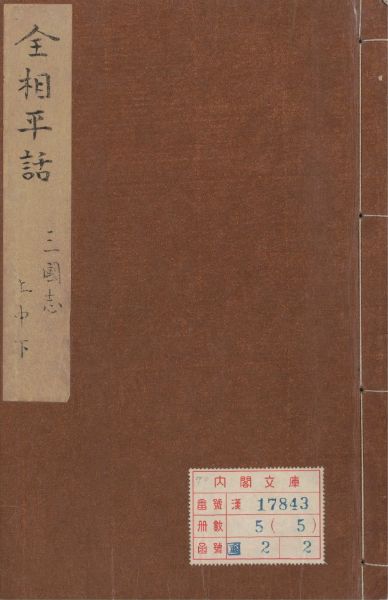 全相平話
三國志
上中下
内閣文庫
番號 漢 17843
册數 5(5)
函號 2 2